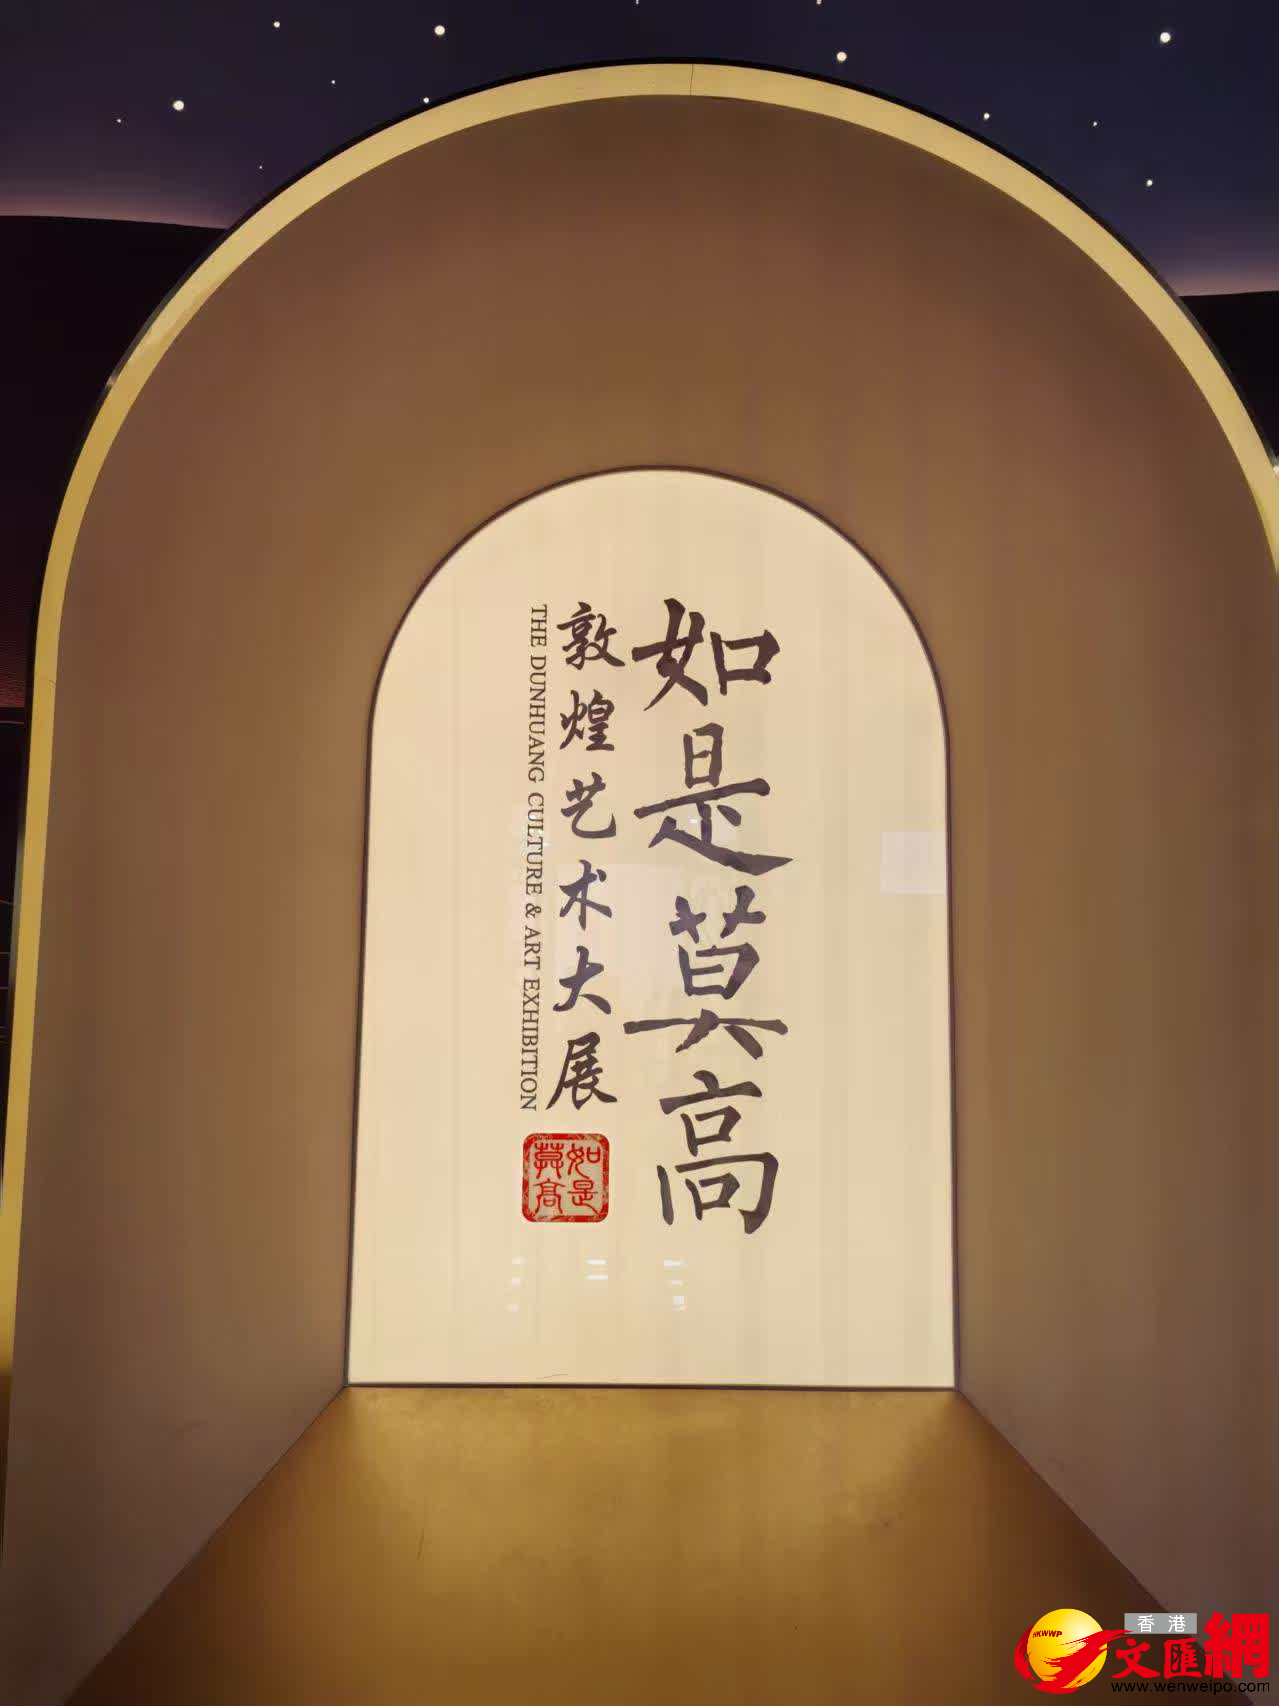 如是莫高
敦煌艺术大展
THE DUNHUANG CULTURE & ART EXHIBITION
如是
莫高
HKWWP
香港
文匯網
www.wenweipo.com